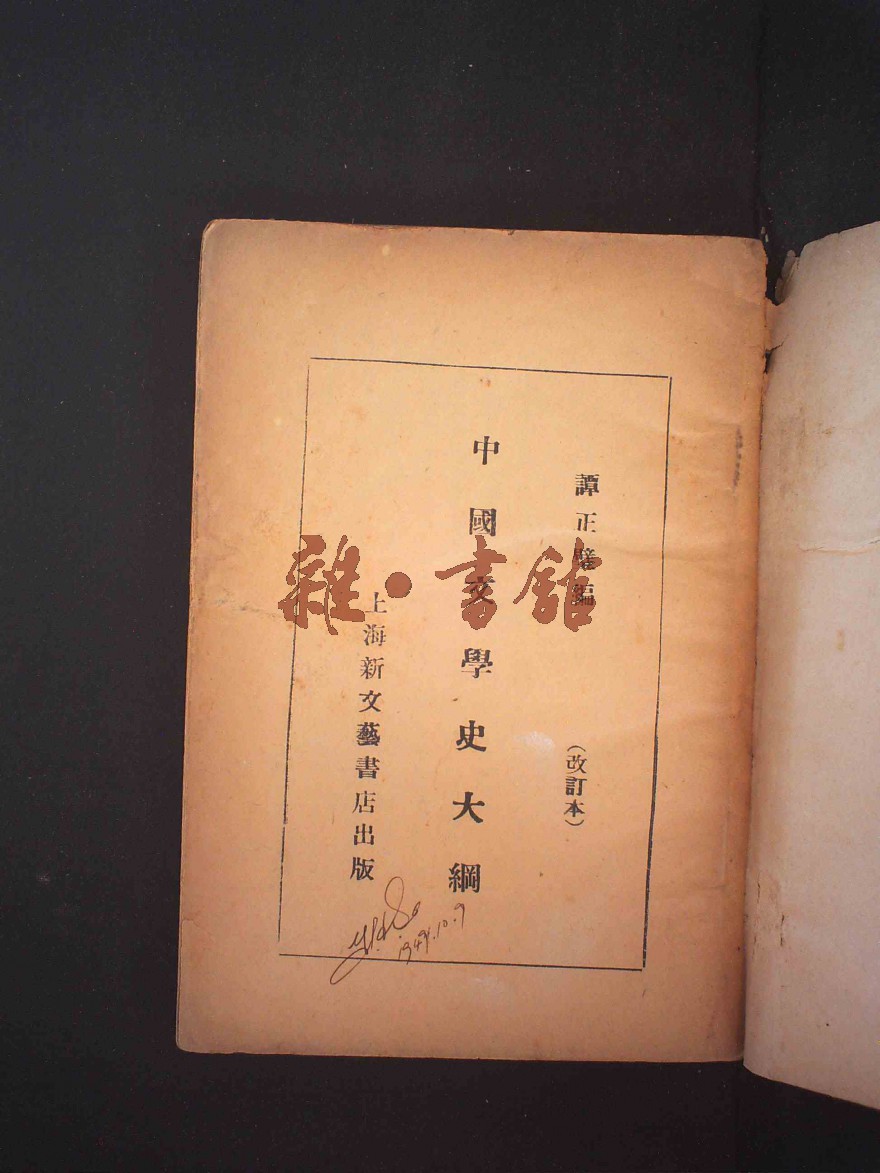 譚正璧編
（改訂本）
中國文學史大綱
上海新文藝書店出版
1949.10.9
雜·書館